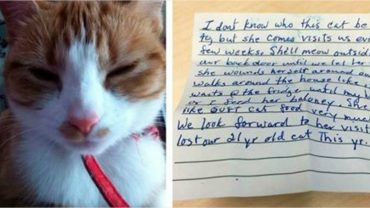 I dont know who this cat be
to but she comes visits us ev
few weeks. She'll meow outsid
our back door until we let her
she wounds herself around ou
walks around the house like i
waits @ the fridge until my
or i feed her baloney. She
like OUR cat food very much
We look forward to her visit
lost our 21 yr old cat this yr.